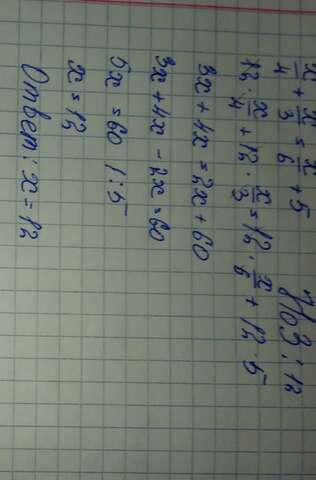 x/4 + x/3 = x/6 + 5      НОЗ: 12
12 · x/4 + 12 · x/3 = 12 · x/6 + 12 · 5
3x + 4x = 2x + 60
3x + 4x - 2x = 60
5x = 60 | : 5
x = 12
Ответ: x = 12